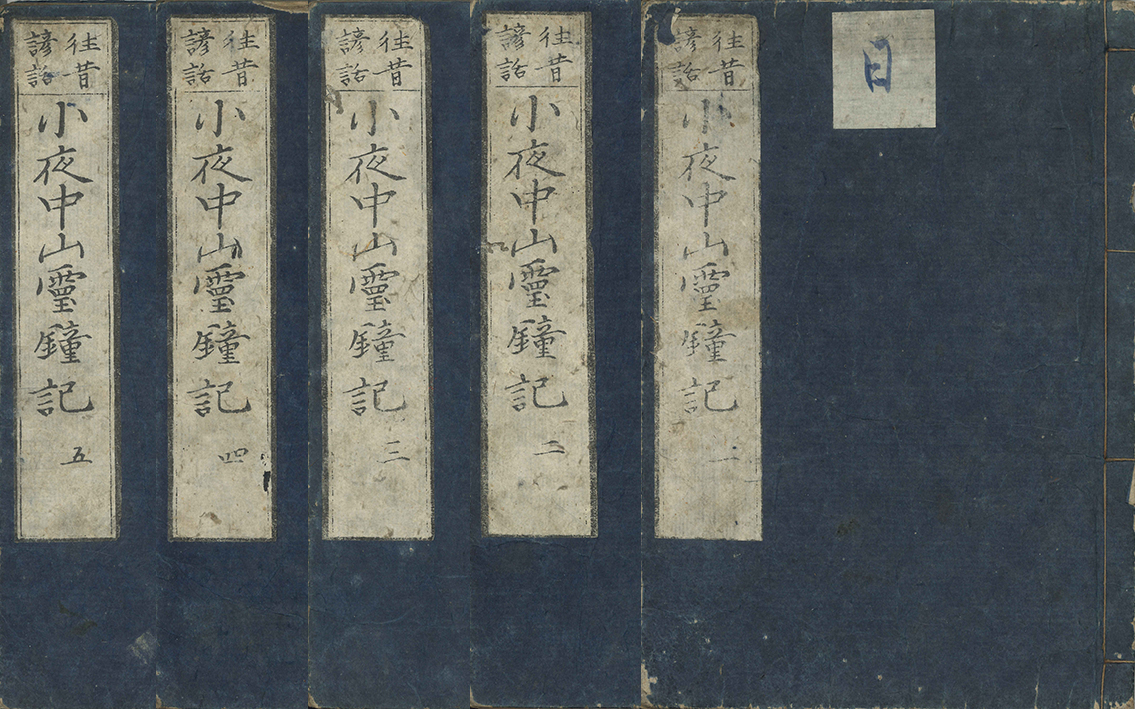 日
往昔
諺話
小夜中山霊鐘記 一
往昔
諺話
小夜中山霊鐘記 二
往昔
諺話
小夜中山霊鐘記 三
往昔
諺話
小夜中山霊鐘記 四
往昔
諺話
小夜中山霊鐘記 五